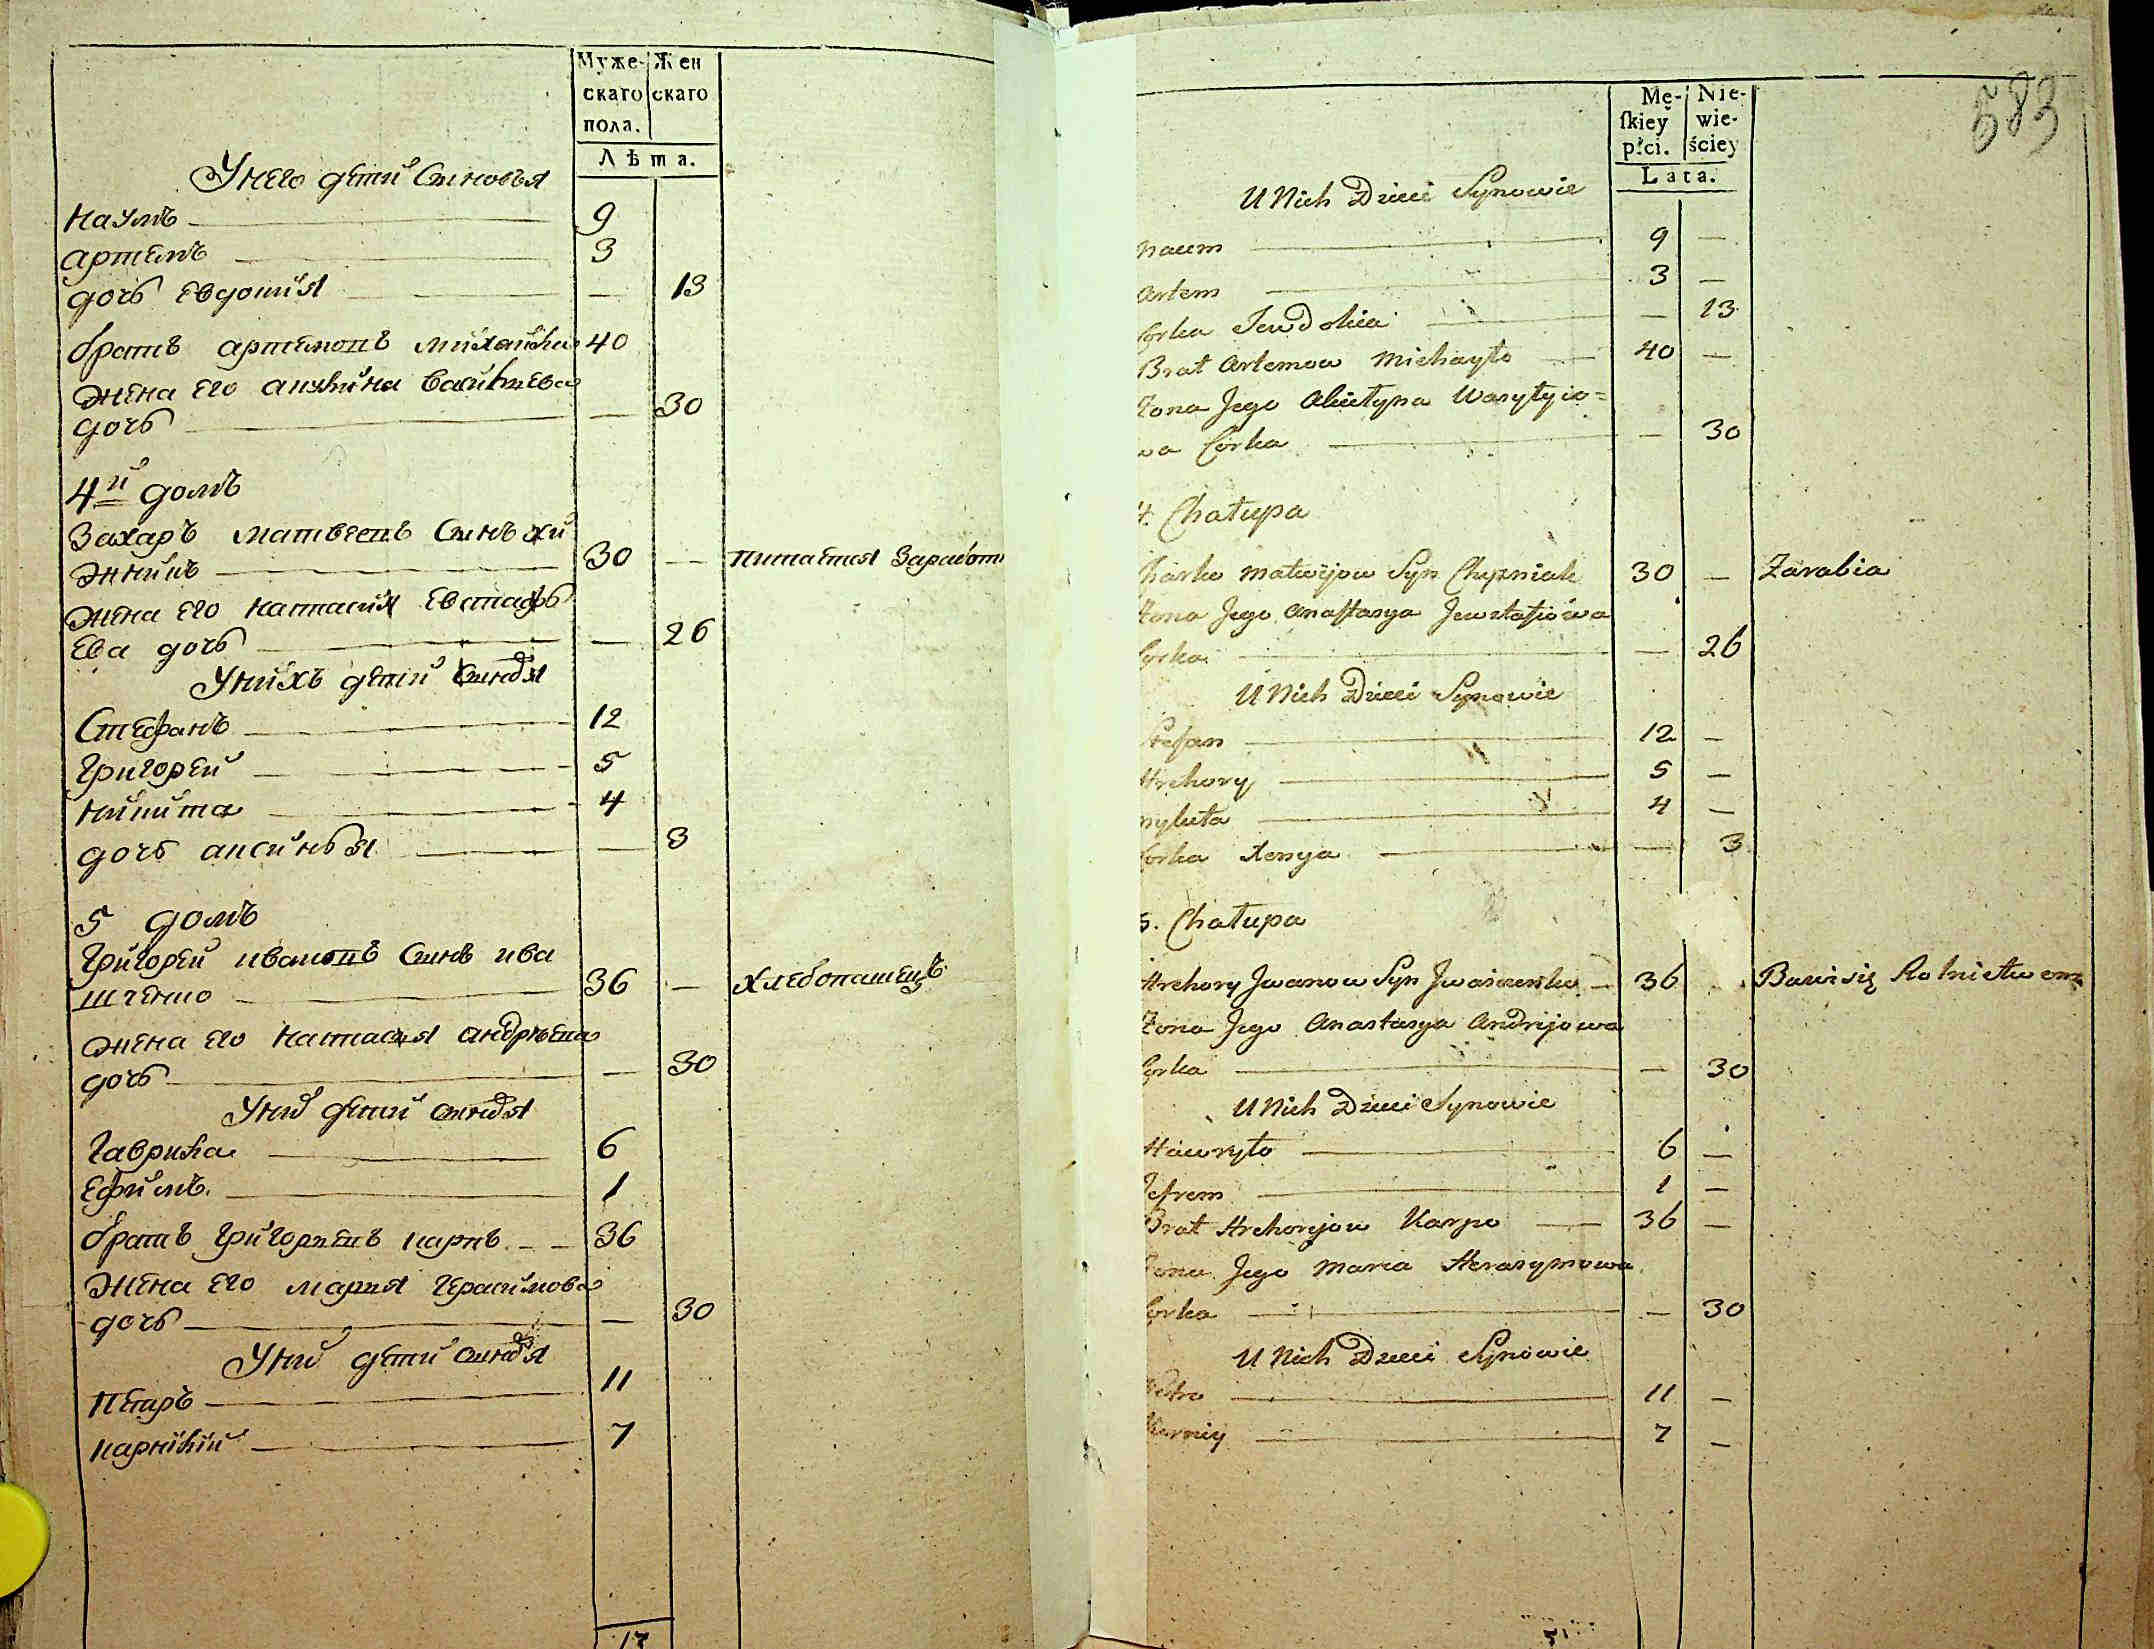 Муже-
скаго
пола.
Жен
скаго
Лѣта.
У него дети Синовья
Наумъ 9
артемъ 3
дочь евдокия — 13
братъ артемовъ михайла 40
жена его акулина василиева
дочь — 30
4й домъ
Захаръ матвеевъ Синъ хи
жнякъ 30 — питается Заработк
жена его настасия евстафь
ева дочь — 26
У нихъ дети Синовя
Стефанъ 12
Григорей 5
Никита 4
дочь аксинья — 3
5 домъ
Григорей ивановъ Синъ ива
шченко 36 — хлебопашецъ
жена его настасия андрѣева
дочь — 30
У них дети синовя
Гаврила 6
Ефимъ 1
братъ григориевъ карпъ 36
жена его мария герасимова
дочь — 30
У них дети синовя
Петръ 11
карнилий 7
17
583
Mę-
ſkiey
płci.
Nie-
wie-
ściey
Lata.
U Nich Dzieci Synowie
Naum 9 —
Artem 3 —
Corka Jewdokia — 13
Brat Artemow Michayło 40 —
Zona Jego Akiłyna Wasylyio=
wa Corka — 30
4. Chałupa
Charko Matwijow Syn Chyzniak 30 — Zarabia
Zona Jego Anastasya Jewstafiowa
Corka — 26
U Nich Dzieci Synowie
Stefan 12 —
Hrehory 5 —
Mykita 4 —
Corka Xenya — 3
5. Chałupa
Hrehory Jwanow Syn Jwaszczenko 36 Bawi się Rolnictwem
Zona Jego Anastasya Andrijowa
Corka — 30
U Nich Dzieci Synowie
Hawryło 6 —
Jefrem 1 —
Brat Hrehoryow Karpo 36 —
Zona Jego Maria Herasymowa
Corka — 30
U Nich Dzieci Synowie
Petro 11 —
Korniy 7 —